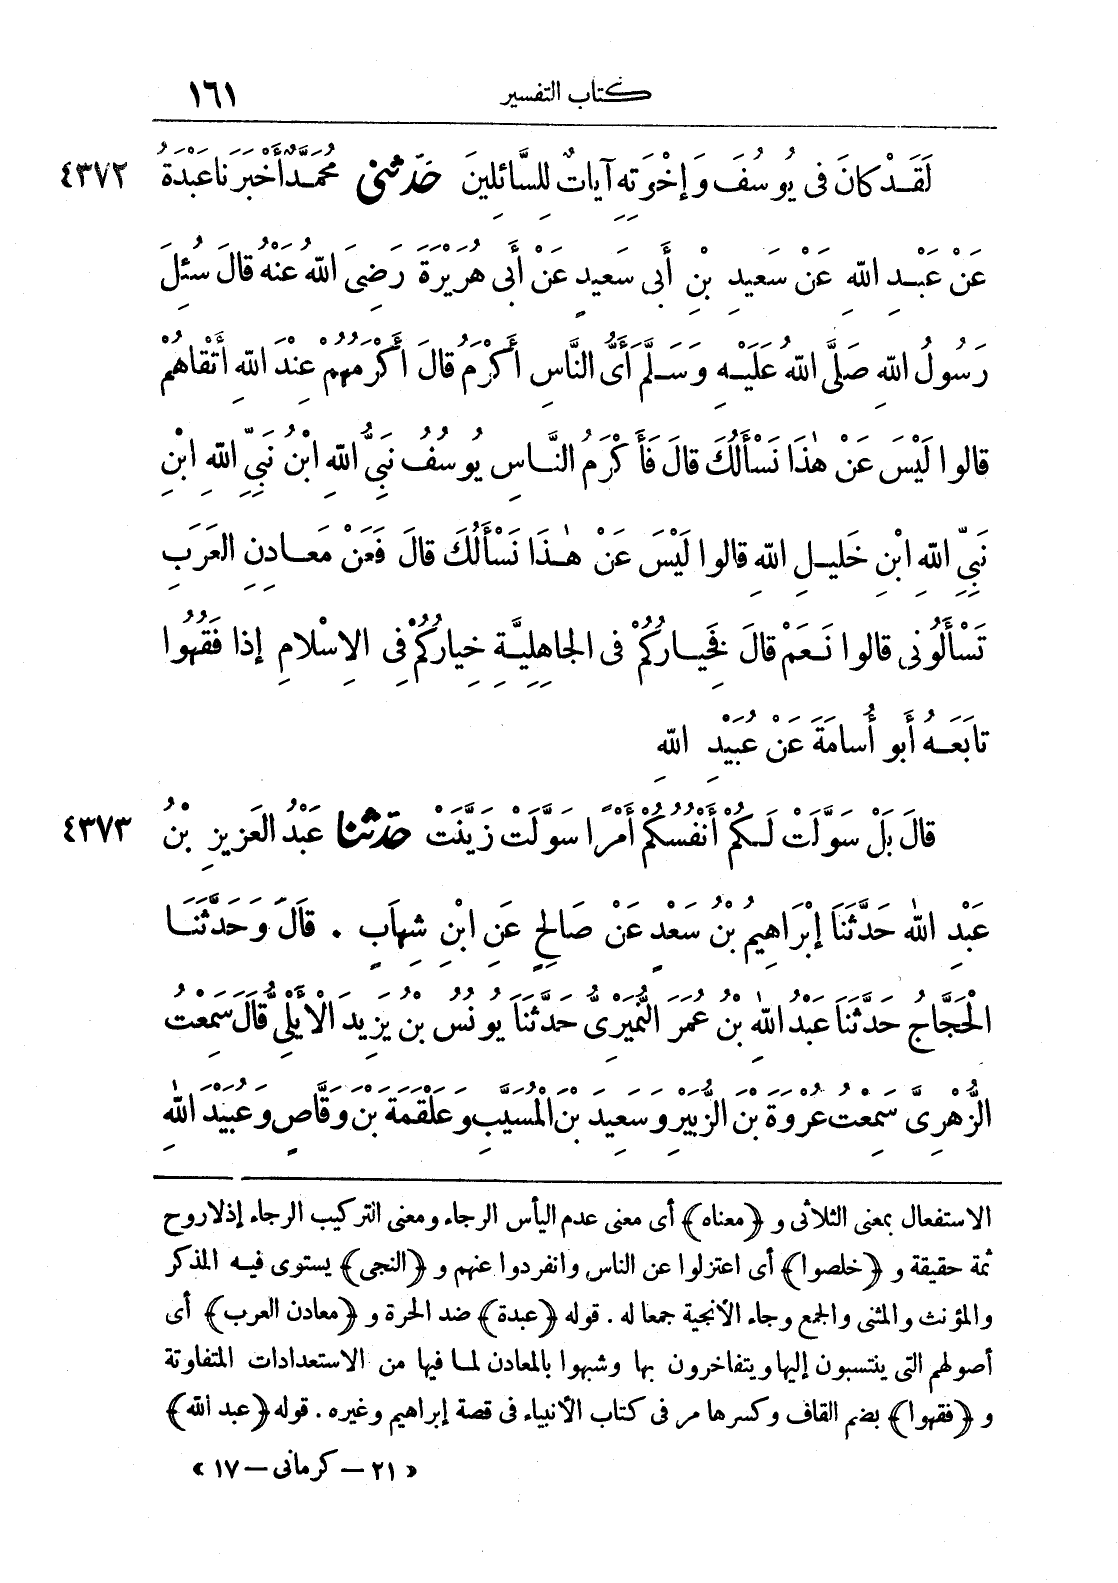 كتاب التفسير ١٦١
لَقَدْ كانَ فى يُوسُفَ وَإِخْوَتِهِ آيَاتٌ لِلسَّائِلِينَ حَدَّثَنِى مُحَمَّدٌ أَخْبَرَنَا عَبْدَةُ ٤٣٧٢
عَنْ عَبْدِ اللهِ عَنْ سَعِيدِ بْنِ أَبِى سَعِيدٍ عَنْ أَبِى هُرَيْرَةَ رَضِىَ اللهُ عَنْهُ قالَ سُئِلَ
رَسُولُ اللهِ صَلَّى اللهُ عَلَيْهِ وَسَلَّمَ أَىُّ النَّاسِ أَكْرَمُ قالَ أَكْرَمُهُمْ عِنْدَ اللهِ أَتْقاهُمْ
قالوا لَيْسَ عَنْ هٰذَا نَسْأَلُكَ قالَ فَأَكْرَمُ النَّاسِ يُوسُفُ نَبِىُّ اللهِ ابْنُ نَبِىِّ اللهِ ابْنِ
نَبِىِّ اللهِ ابْنِ خَلِيلِ اللهِ قالوا لَيْسَ عَنْ هٰذَا نَسْأَلُكَ قالَ فَعَنْ مَعَادِنِ العَرَبِ
تَسْأَلُونِى قالوا نَعَمْ قالَ فَخِيارُكُمْ فى الجاهِلِيَّةِ خِيارُكُمْ فِى الِاسْلامِ إِذا فَقُهُوا
تابَعَهُ أَبو أُسامَةَ عَنْ عُبَيْدِ اللهِ
قالَ بَلْ سَوَّلَتْ لَكُمْ أَنْفُسُكُمْ أَمْرًا سَوَّلَتْ زَيَّنَتْ حَدَّثَنا عَبْدُ العَزِيزِ بْنُ ٤٣٧٣
عَبْدِ اللهِ حَدَّثَنَا إِبْرَاهِيمُ بْنُ سَعْدٍ عَنْ صَالِحٍ عَنِ ابْنِ شِهَابٍ . قَالَ وَحَدَّثَنَا
الْحَجَّاجُ حَدَّثَنَا عَبْدُ اللهِ بْنُ عُمَرَ النُّمَيْرِىُّ حَدَّثَنَا يُونُسُ بْنُ يَزِيدَ الْأَيْلِىُّ قَالَ سَمِعْتُ
الزُّهْرِىَّ سَمِعْتُ عُرْوَةَ بْنَ الزُّبَيْرِ وَسَعِيدَ بْنَ الْمُسَيَّبِ وَعَلْقَمَةَ بْنَ وَقَّاصٍ وَعُبَيْدَ اللهِ
الاستفعال بمعنى الثلاثى و ﴿معناه﴾ أى معنى عدم اليأس الرجاء ومعنى التركيب الرجاء إذ لا روح
ثمة حقيقة و ﴿خلصوا﴾ أى اعتزلوا عن الناس وانفردوا عنهم و ﴿النجى﴾ يستوى فيه المذكر
والمؤنث والمثنى والجمع وجاء الأنجية جمعا له . قوله ﴿عبدة﴾ ضد الحرة و ﴿معادن العرب﴾ أى
أصولهم التى ينتسبون إليها ويتفاخرون بها وشبهوا بالمعادن لما فيها من الاستعدادات المتفاوتة
و ﴿فقهوا﴾ بضم القاف وكسرها مر فى كتاب الأنبياء فى قصة إبراهيم وغيره . قوله ﴿عبد الله﴾
« ٢١ – كرمانى – ١٧ »